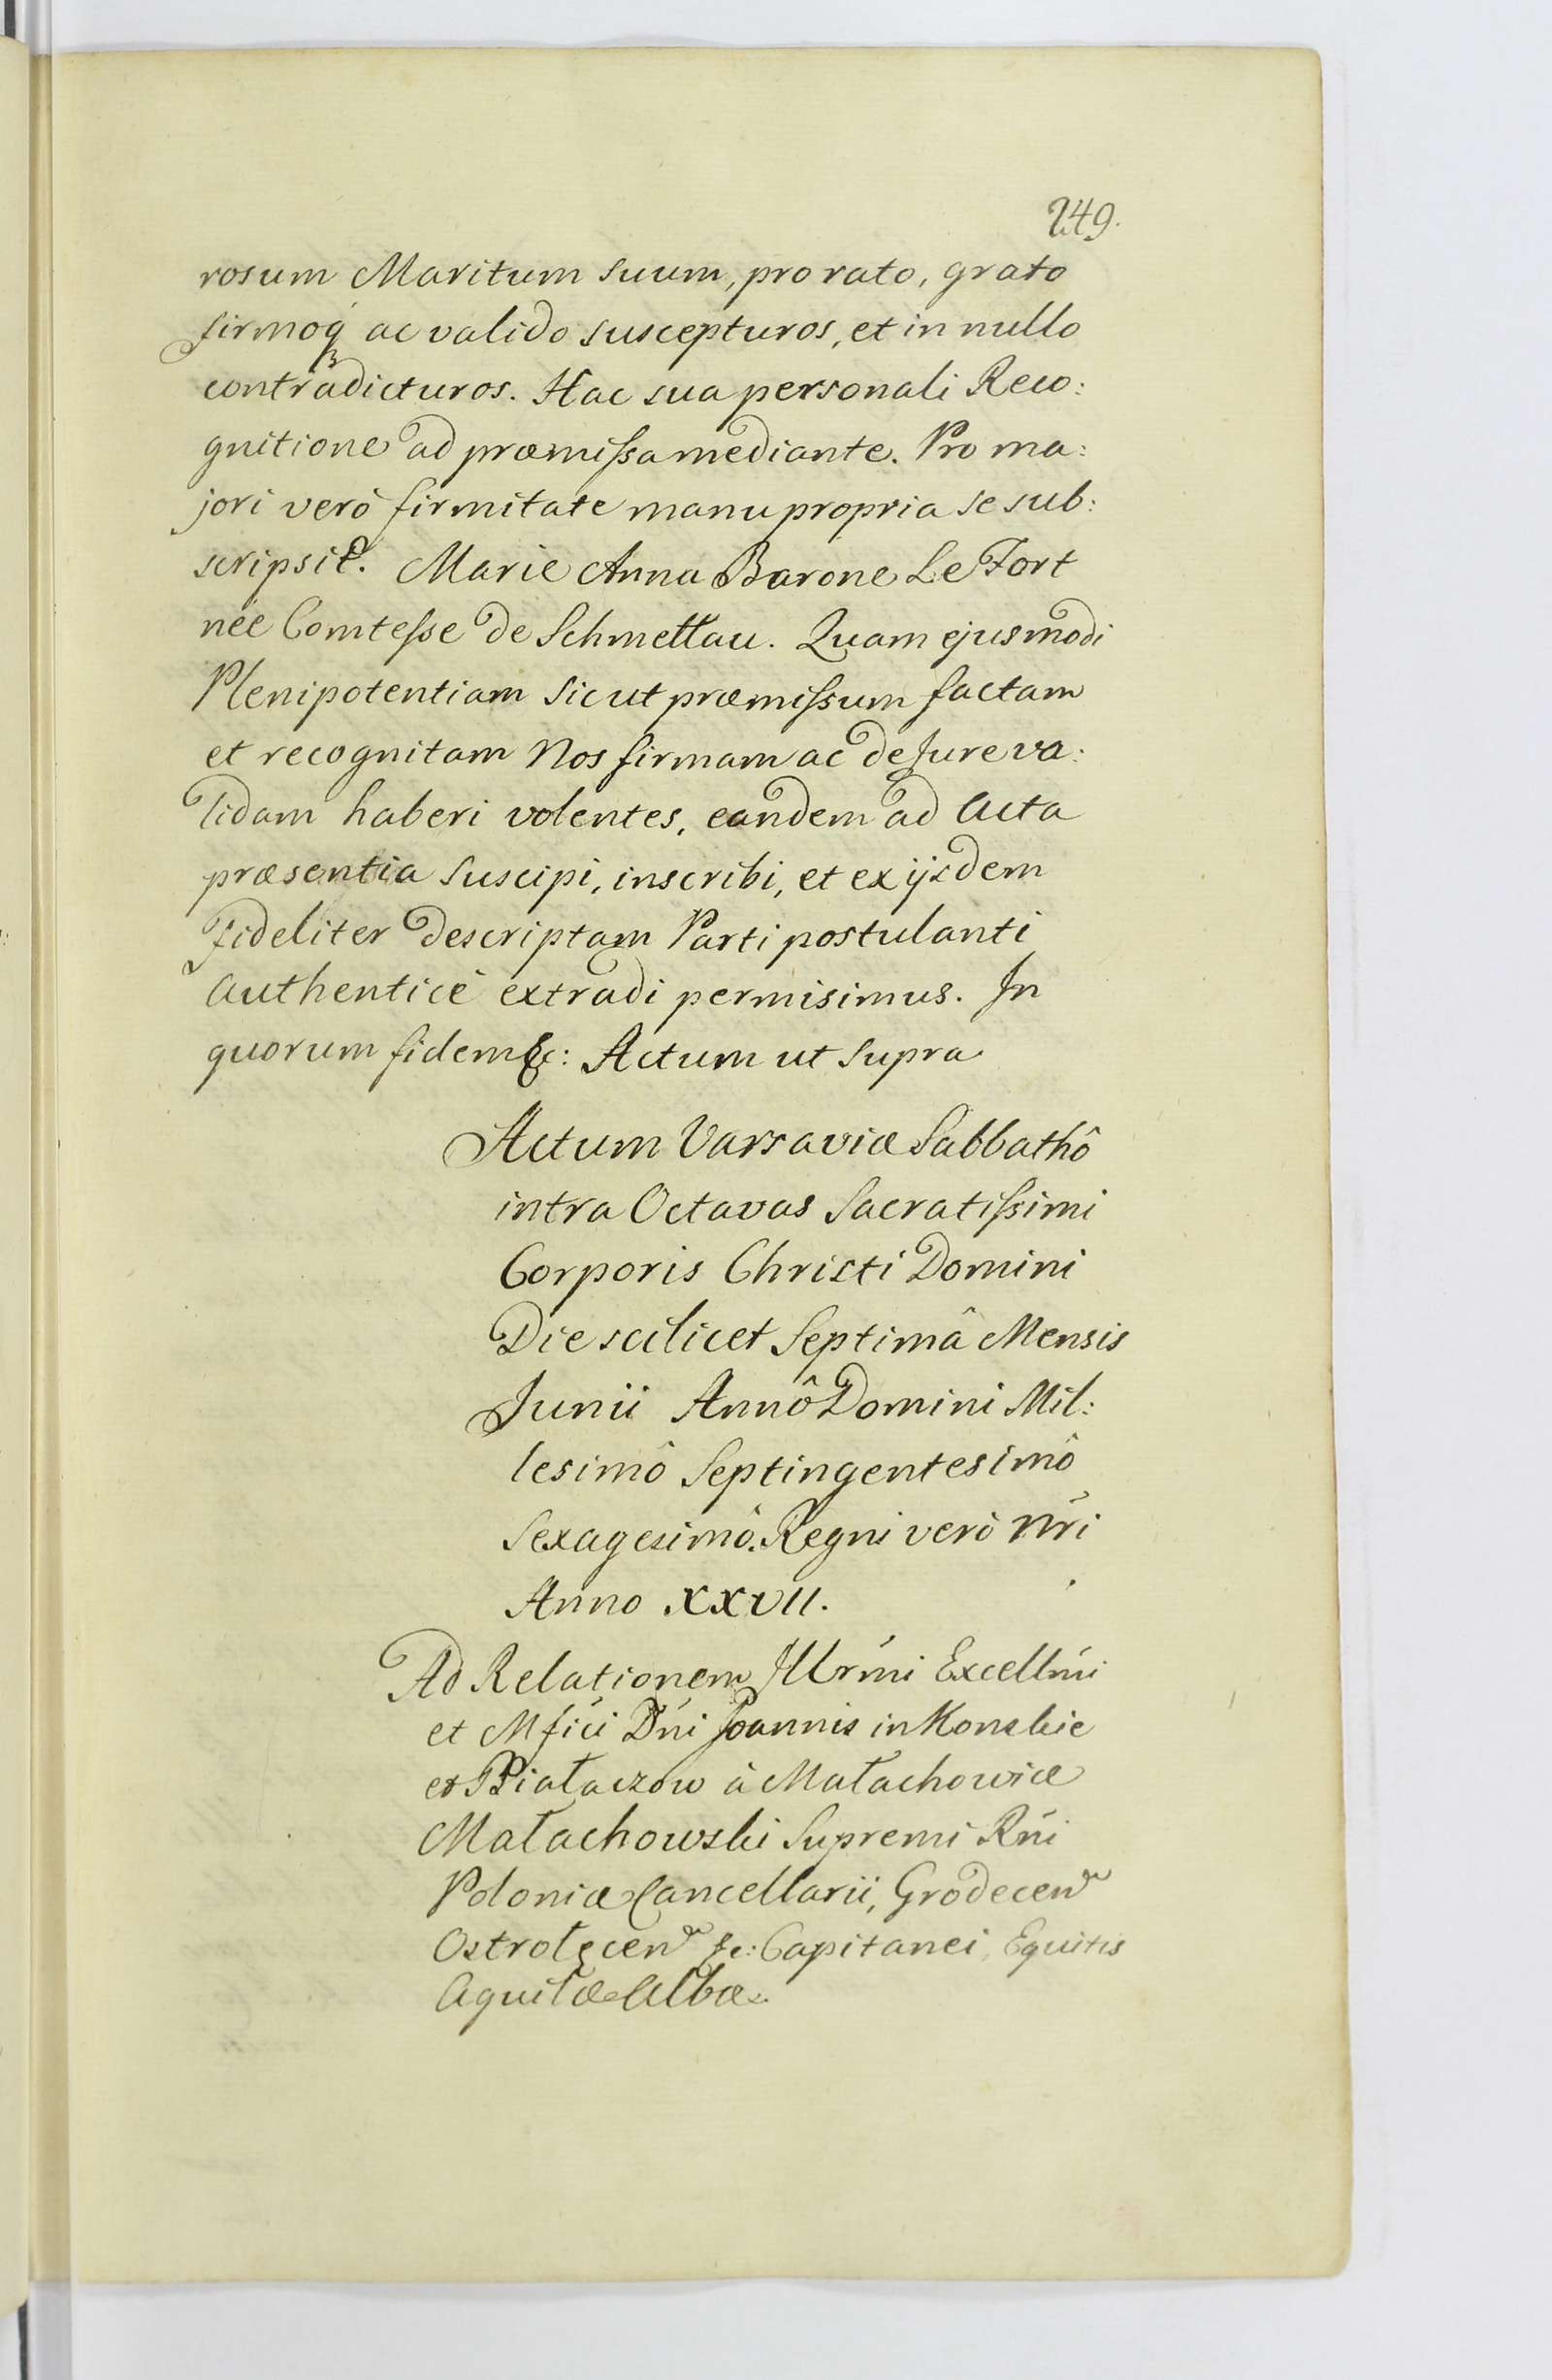 249.
rosum Maritum suum, pro rato, grato
firmoq́ꝫ ac valido suscepturos, et in nullo
contradicturos. Hac sua personali Reco:
gnitione ad præmiſsa mediante. Pro ma:
jori verò firmitate manu propria se sub:
scripsit. Marie Anna Barone Le Fort
née Comteſse de Schmettau. Quam ejusmodi
Plenipotentiam sicut præmiſsum factam
et recognitam Nos firmam ac de Jure va:
lidam haberi volentes, eandem ad Acta
præsentia suscipi, inscribi, et ex ijsdem
fideliter descriptam Parti postulanti
authenticè extradi permisimus. In
quorum fidem &c: Actum ut supra
Actum Varsaviæ Sabbathô
intra Octavas Sacratiſsimi
Corporis Christi Domini
Die scilicet Septimâ Mensis
Junii Annô Domini Mil:
lesimô Septingentesimô
Sexagesimô. Regni verò Nŕi
Anno XXVII.
Ad Relationem Illrḿi Excellḿi
et Mfići Dńi Joannis in Konskie
et Białaczow à Małachowice
Małachowski Supremi Rńi
Poloniæ Cancellarii, Grodecen
Ostrołęcen &c: Capitanei, Equitis
Aquilæ Albæ.